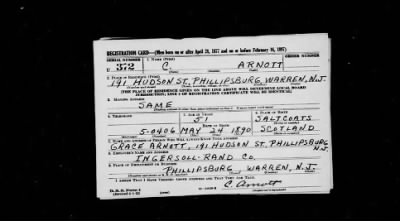 REGISTRATION CARD—(Men born on or after April 28, 1877 and on or before February 16, 1897)
SERIAL NUMBER 1. NAME (Print) ORDER NUMBER
U 372 C. ARNOTT
(First) (Middle) (Last)
2. PLACE OF RESIDENCE (Print)
191 HUDSON ST, PHILLIPSBURG, WARREN, N.J.
[THE PLACE OF RESIDENCE GIVEN ON THE LINE ABOVE WILL DETERMINE LOCAL BOARD
JURISDICTION; LINE 2 OF REGISTRATION CERTIFICATE WILL BE IDENTICAL]
3. MAILING ADDRESS
SAME
4. TELEPHONE 5. AGE IN YEARS 6. PLACE OF BIRTH
51 SALTCOATS
DATE OF BIRTH
5-0406 MAY 24 1890 SCOTLAND
7. NAME AND ADDRESS OF PERSON WHO WILL ALWAYS KNOW YOUR ADDRESS
GRACE ARNOTT, 191 HUDSON ST. PHILLIPSBURG N.J.
8. EMPLOYER'S NAME AND ADDRESS
INGERSOLL-RAND CO.
9. PLACE OF EMPLOYMENT OR BUSINESS
PHILLIPSBURG WARREN, N.J.
I AFFIRM THAT I HAVE VERIFIED ABOVE ANSWERS AND THAT THEY ARE TRUE.
C. Arnott